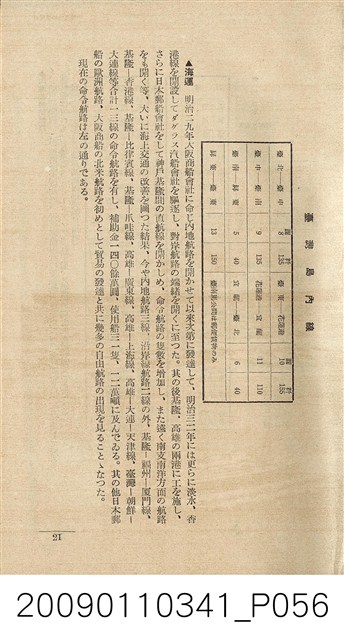 臺灣島內線
臺北―臺中 8 135 臺東―花蓮港 10 155
臺中―臺南 9 135 花蓮港―宜蘭 11 110
臺南―屏東 5 40 宜蘭―臺北 6 40
屏東―臺東 13 150
▲海運 明治二九年大阪商船會社に命じ內地航路を開かせて以來次第に發達して、明治三二年には更らに淡水、香
港線を開設してダグラス汽船會社を驅逐し、對岸航路の端緒を開くに至つた。其の後基隆、高雄の兩港に工を施し、
さらに日本郵船會社をして神戶基隆間の直航線を開かしめ、命令航路の隻數を增加し、また遠く南支南洋方面の航路
をも開く等、大いに海上交通の改善を圖つた結果、今や內地航路三線、沿岸線航路二線の外、基隆―福州―廈門線、
基隆―香港線、基隆―比律賓線、基隆―爪哇線、高雄―廣東線、高雄―上海線、高雄―大連―天津線、臺灣―朝鮮―
大連線等合計一三線の命令航路を有し、補助金一四〇餘萬圓、使用船三一隻、一二萬噸に及んでゐる。其の他日本郵
船の歐洲航路、大阪商船の北米航路を初めとして貿易の發達と共に幾多の自由航路の出現を見ることゝなつた。
現在の命令航路は左の通りである。
21
20090110341_P056